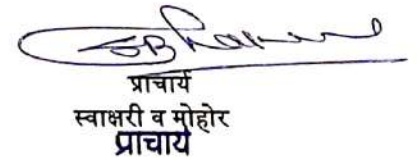 प्राचार्य
स्वाक्षरी व मोहोर
प्राचार्य